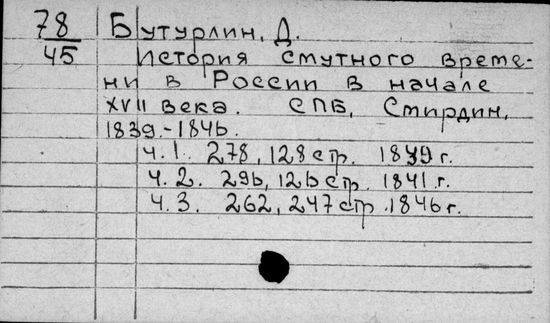 78 Бутурлин, Д.
45 История смутного време-
ни в России в начале
XVII века. СПБ, Стирдин,
1839.-1846.
ч.1. 278, 128 стр. 1839 г.
ч.2. 296, 126 стр. 1841. г.
ч.3. 262, 247 стр. 1846 г.